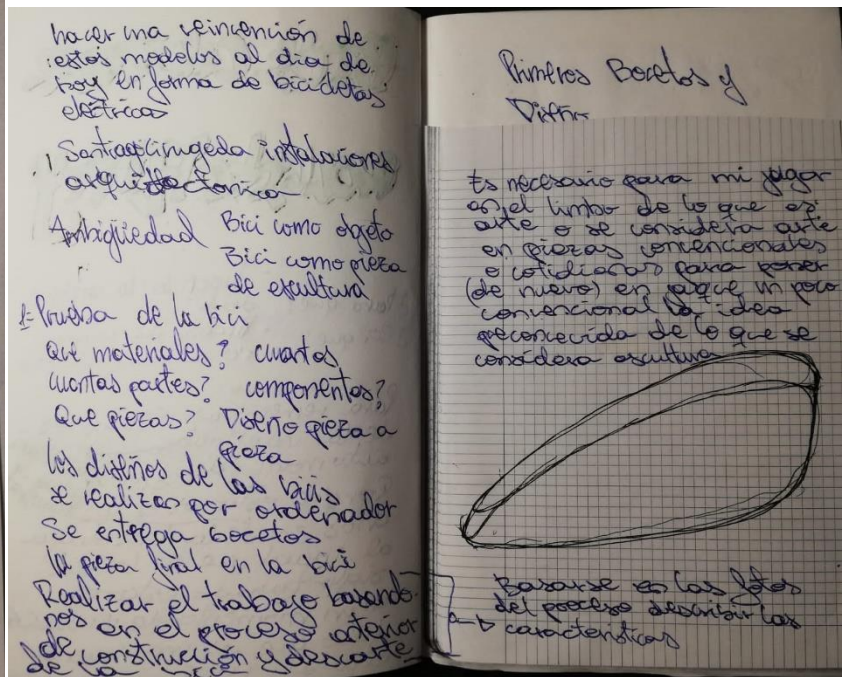 hacer una reinvención de
estos modelos al dia de
hoy en forma de bicicletas
eléctricas
Santiago Cirugeda instalaciones
arquitectonica
Ambigüedad Bici como objeto
Bici como pieza
de escultura
1- Prueba de la bici
Qué materiales? cuantos
cuantas partes? componentes?
Que piezas? Diseño pieza a
pieza
los diseños de las bicis
se realizan por ordenador
Se entrega bocetos
la pieza final en la bici
Realizar el trabajo basando-
nos en el proceso anterior
de construcción y descarte
de la bici
Primeros Bocetos y
Es necesario para mi jugar
en el limbo de lo que es
arte o se considera arte
en piezas convencionales
o cotidianas para poner
(de nuevo) en jaque un poco
convencional la idea
preconcevida de lo que se
considera escultura
Basarse en las fotos
del proceso describir las
caracteristicas